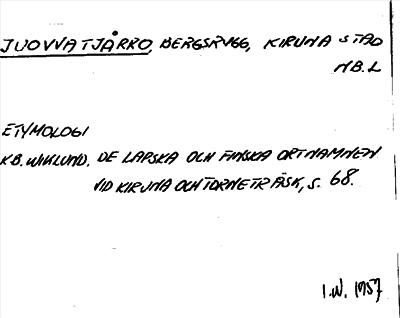 JUOVVATJÅRRO, BERGSRYGG, KIRUNA STAD
NB.L
ETYMOLOGI
K.B. WIKLUND, DE LAPSKA OCH FINSKA ORTNAMNEN
VID KIRUNA OCH TORNETRÄSK, S. 68.
I.W. 1957